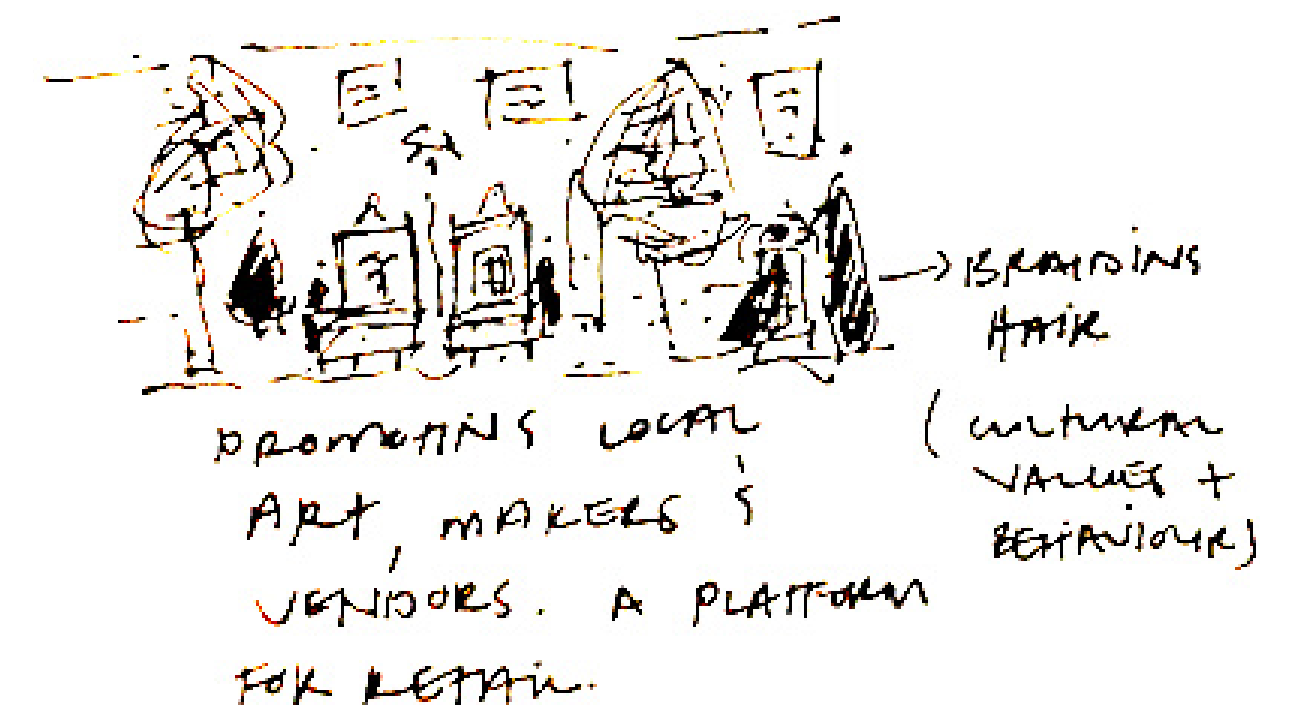 BRAIDING
HAIR
(CULTURAL
VALUES +
BEHAVIOUR)
PROMOTING LOCAL
ART, MAKERS &
VENDORS. A PLATFORM
FOR RETAIL.